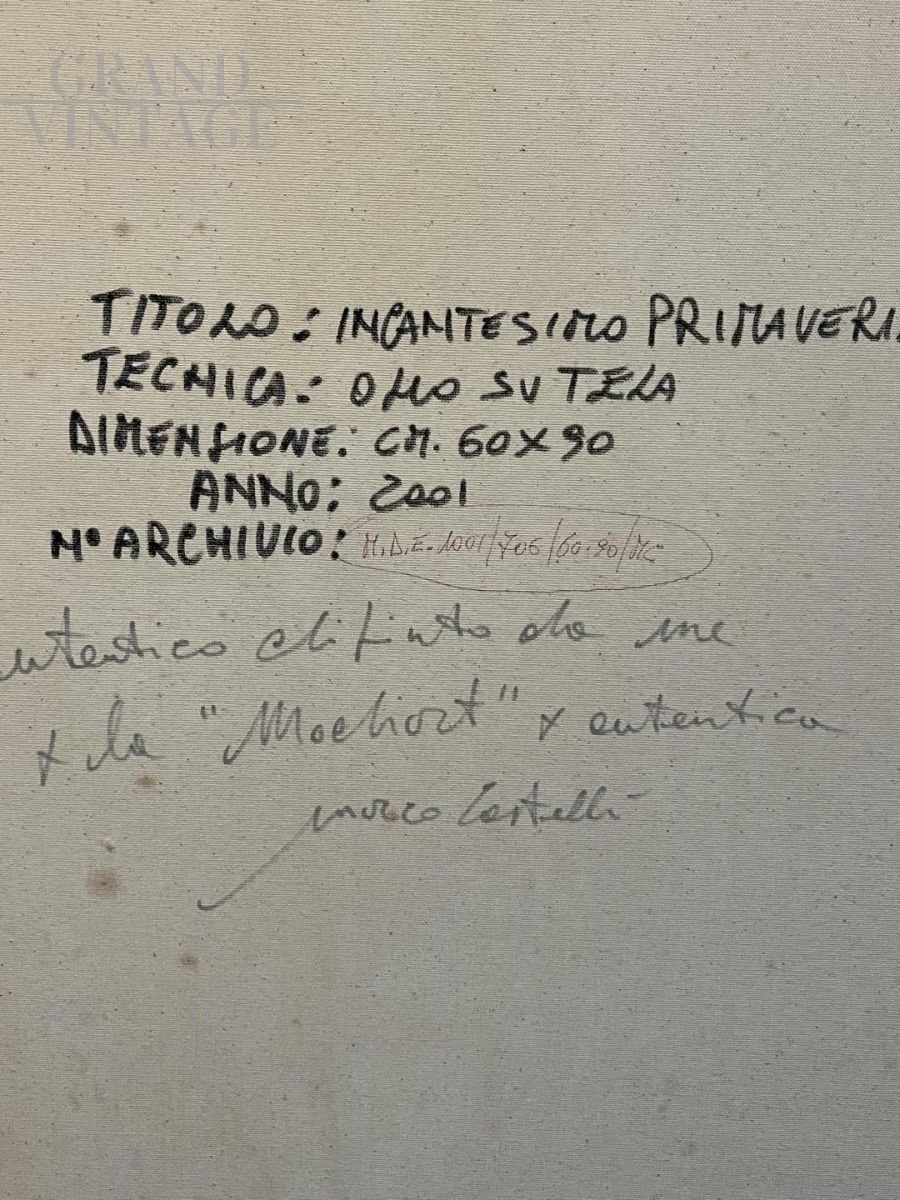 GRAND
VINTAGE
TITOLO: INCANTESIMO PRIMAVERI
TECNICA: OLIO SU TELA
DIMENSIONE: CM. 60X90
ANNO: 2001
N° ARCHIVIO: M.D.E. 1001/706/60.90/MC
utentico di finto da me
x la "Mochort" x autentica
Marco Castelli